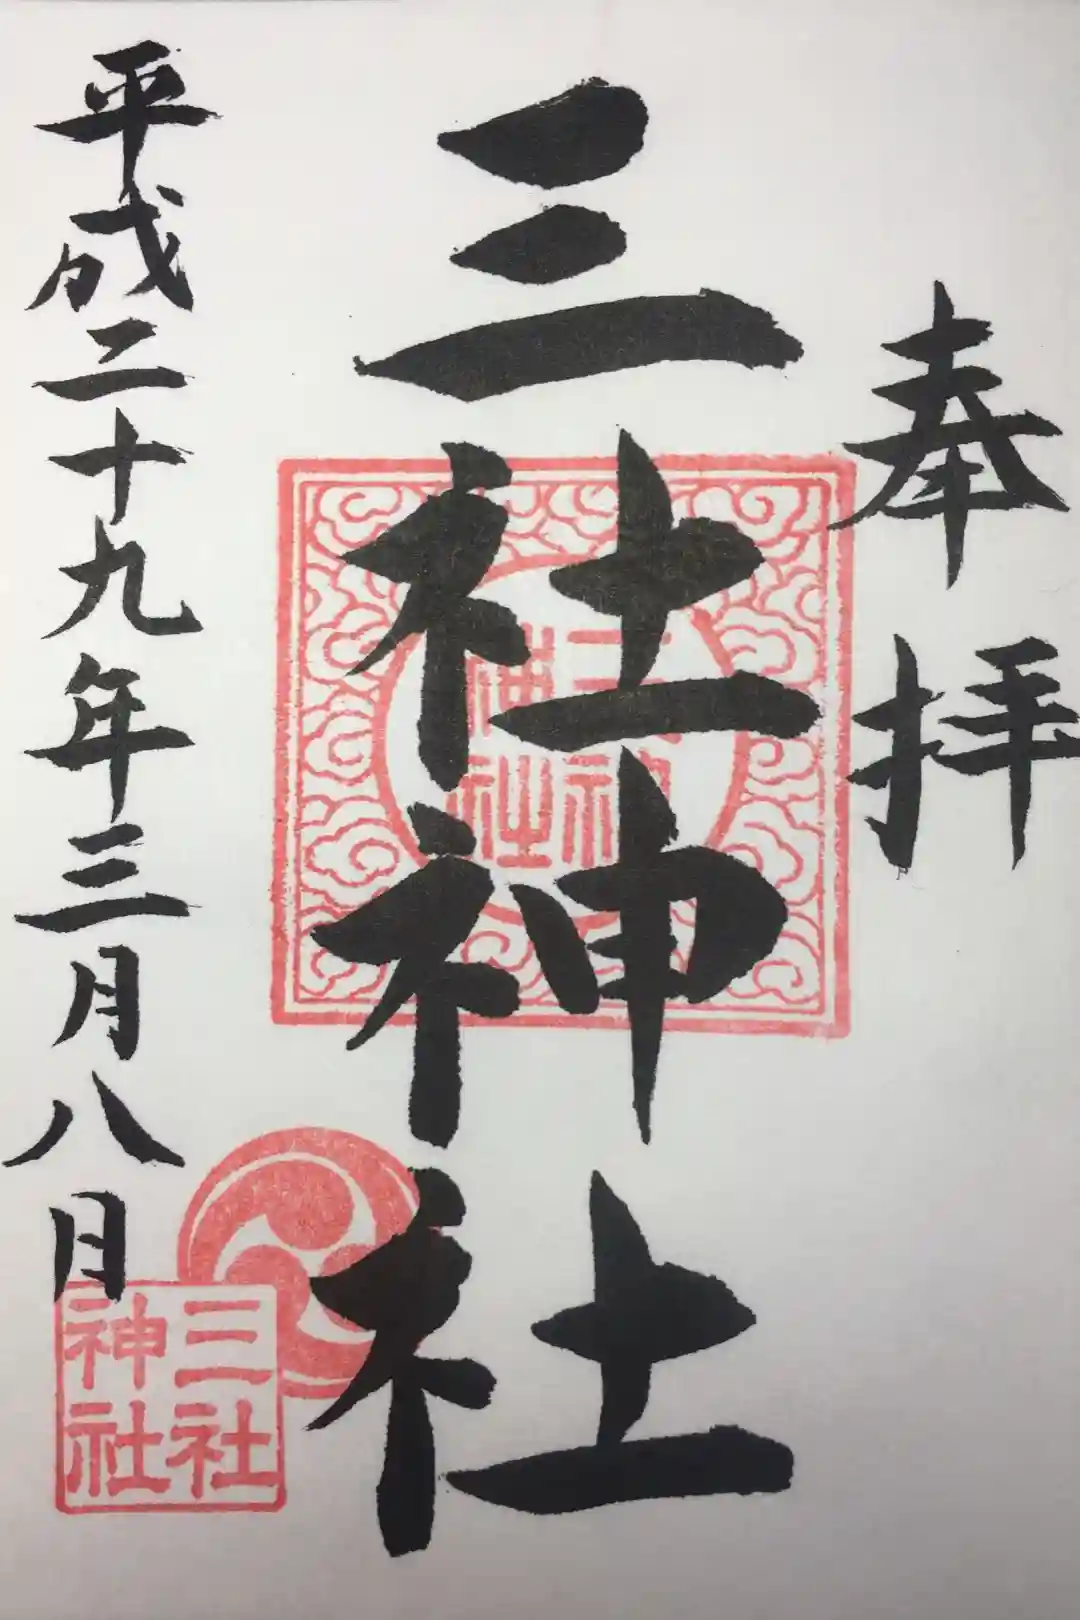 奉拝
三社神社
平成二十九年三月八日
三社
神社
三社
神社